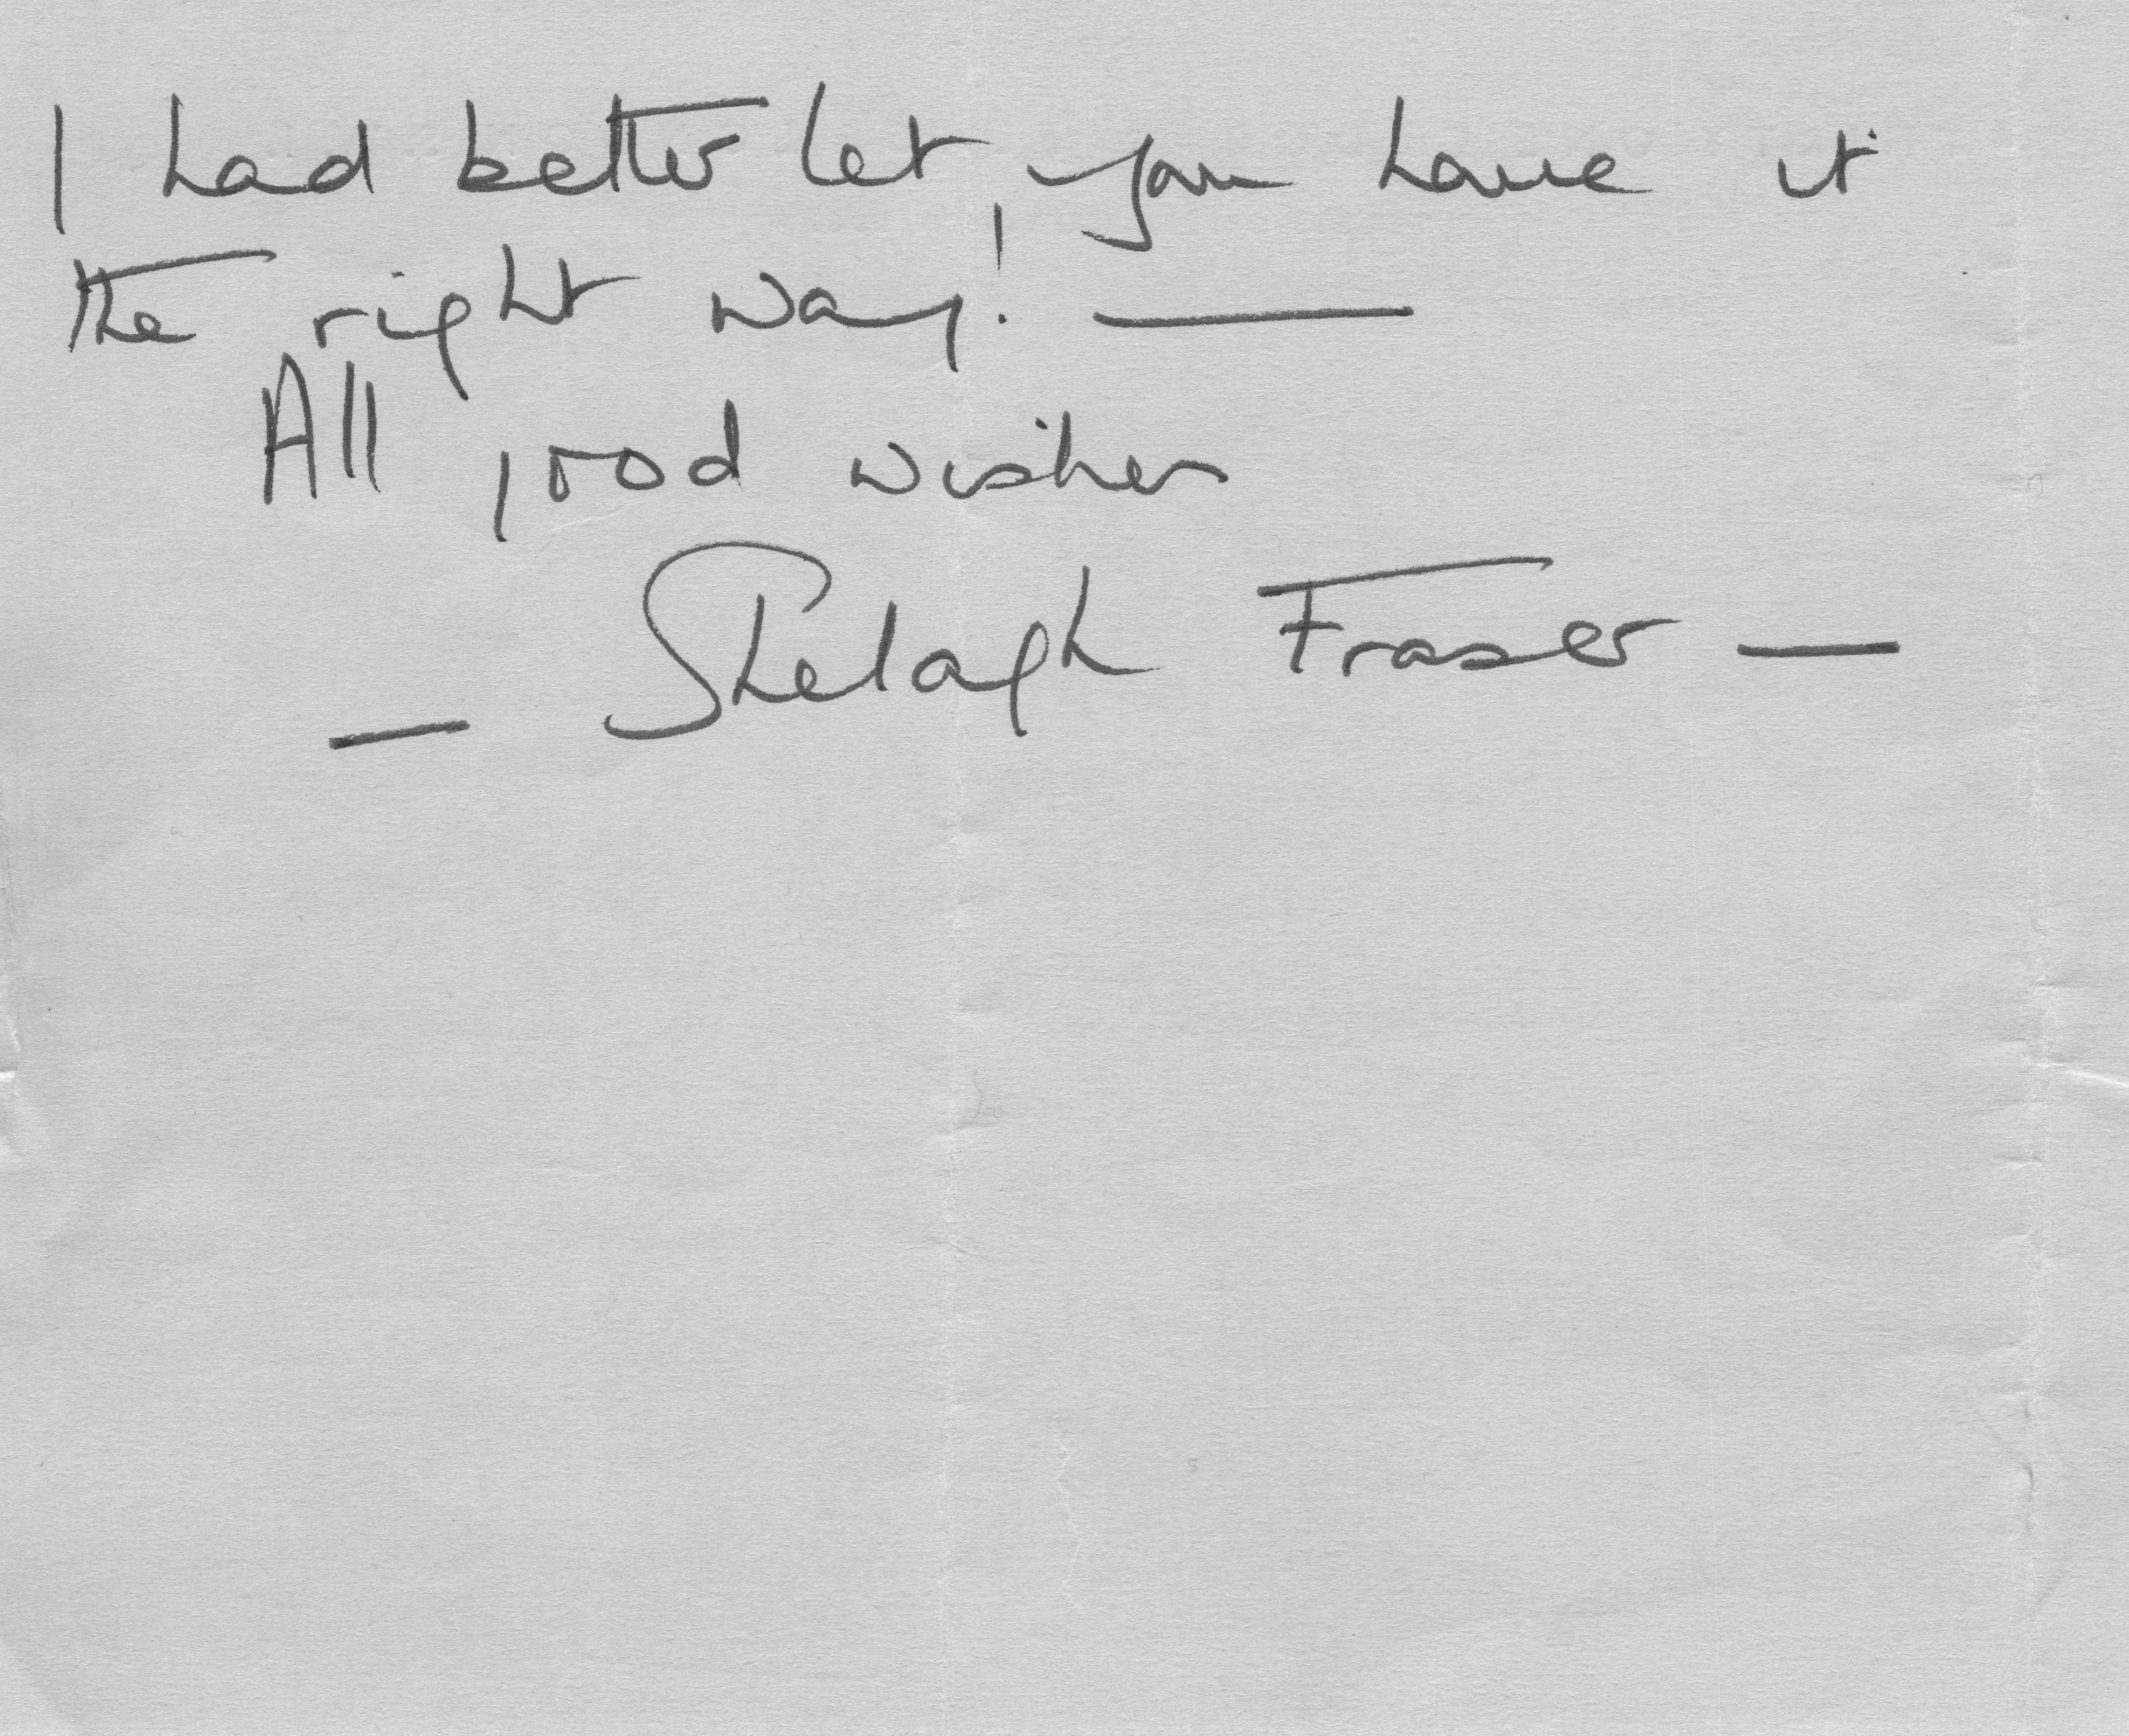 I had better let you have it
the right way! —
All good wishes
— Shelagh Fraser —